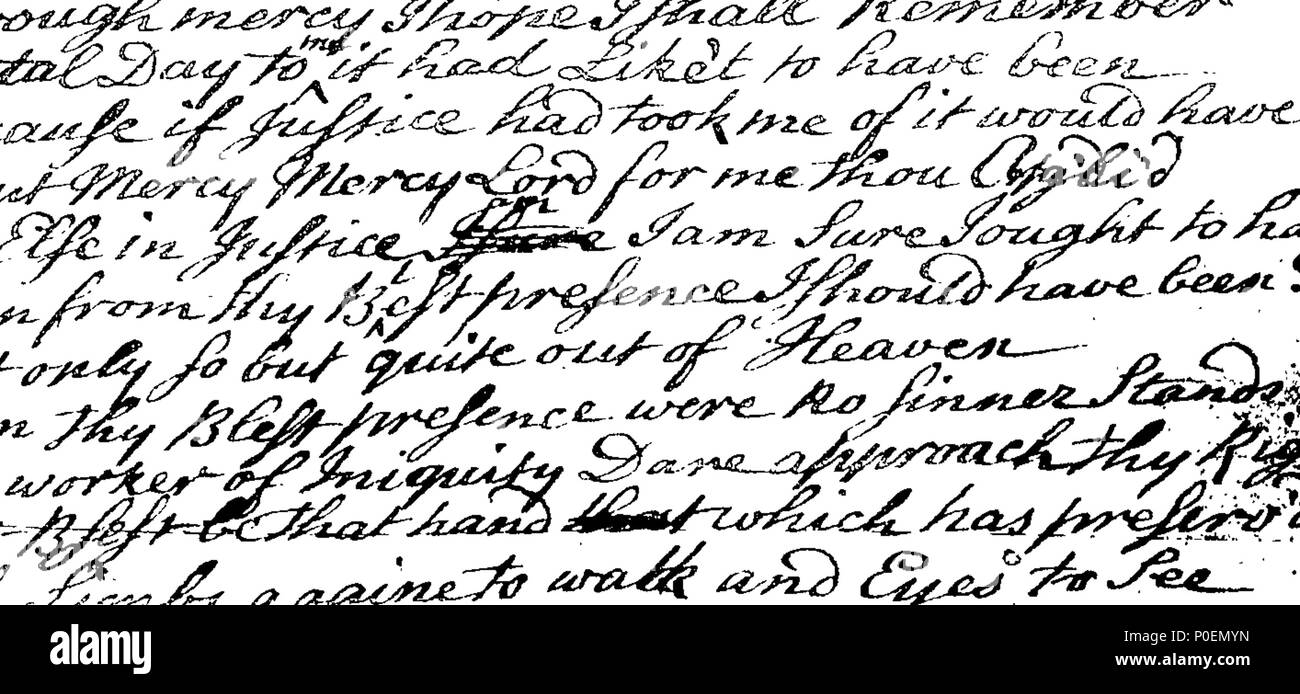 ough mercy I hope I shall Remember
tal Day to me it had Like't to have been
cause if Justice had took me of it would have
ut Mercy Mercy Lord for me thou
Else in Justice I am Sure I ought to ha
n from thy Blest presence I should have been
t only so but quite out of Heaven
m thy Blest presence were no sinner Stands
worker of Iniquity Dare approach thy Rig
Blest be that hand which has preserv'd
Limbs againe to walk and Eyes to See
alamy
Image ID: P0EMYN
www.alamy.com